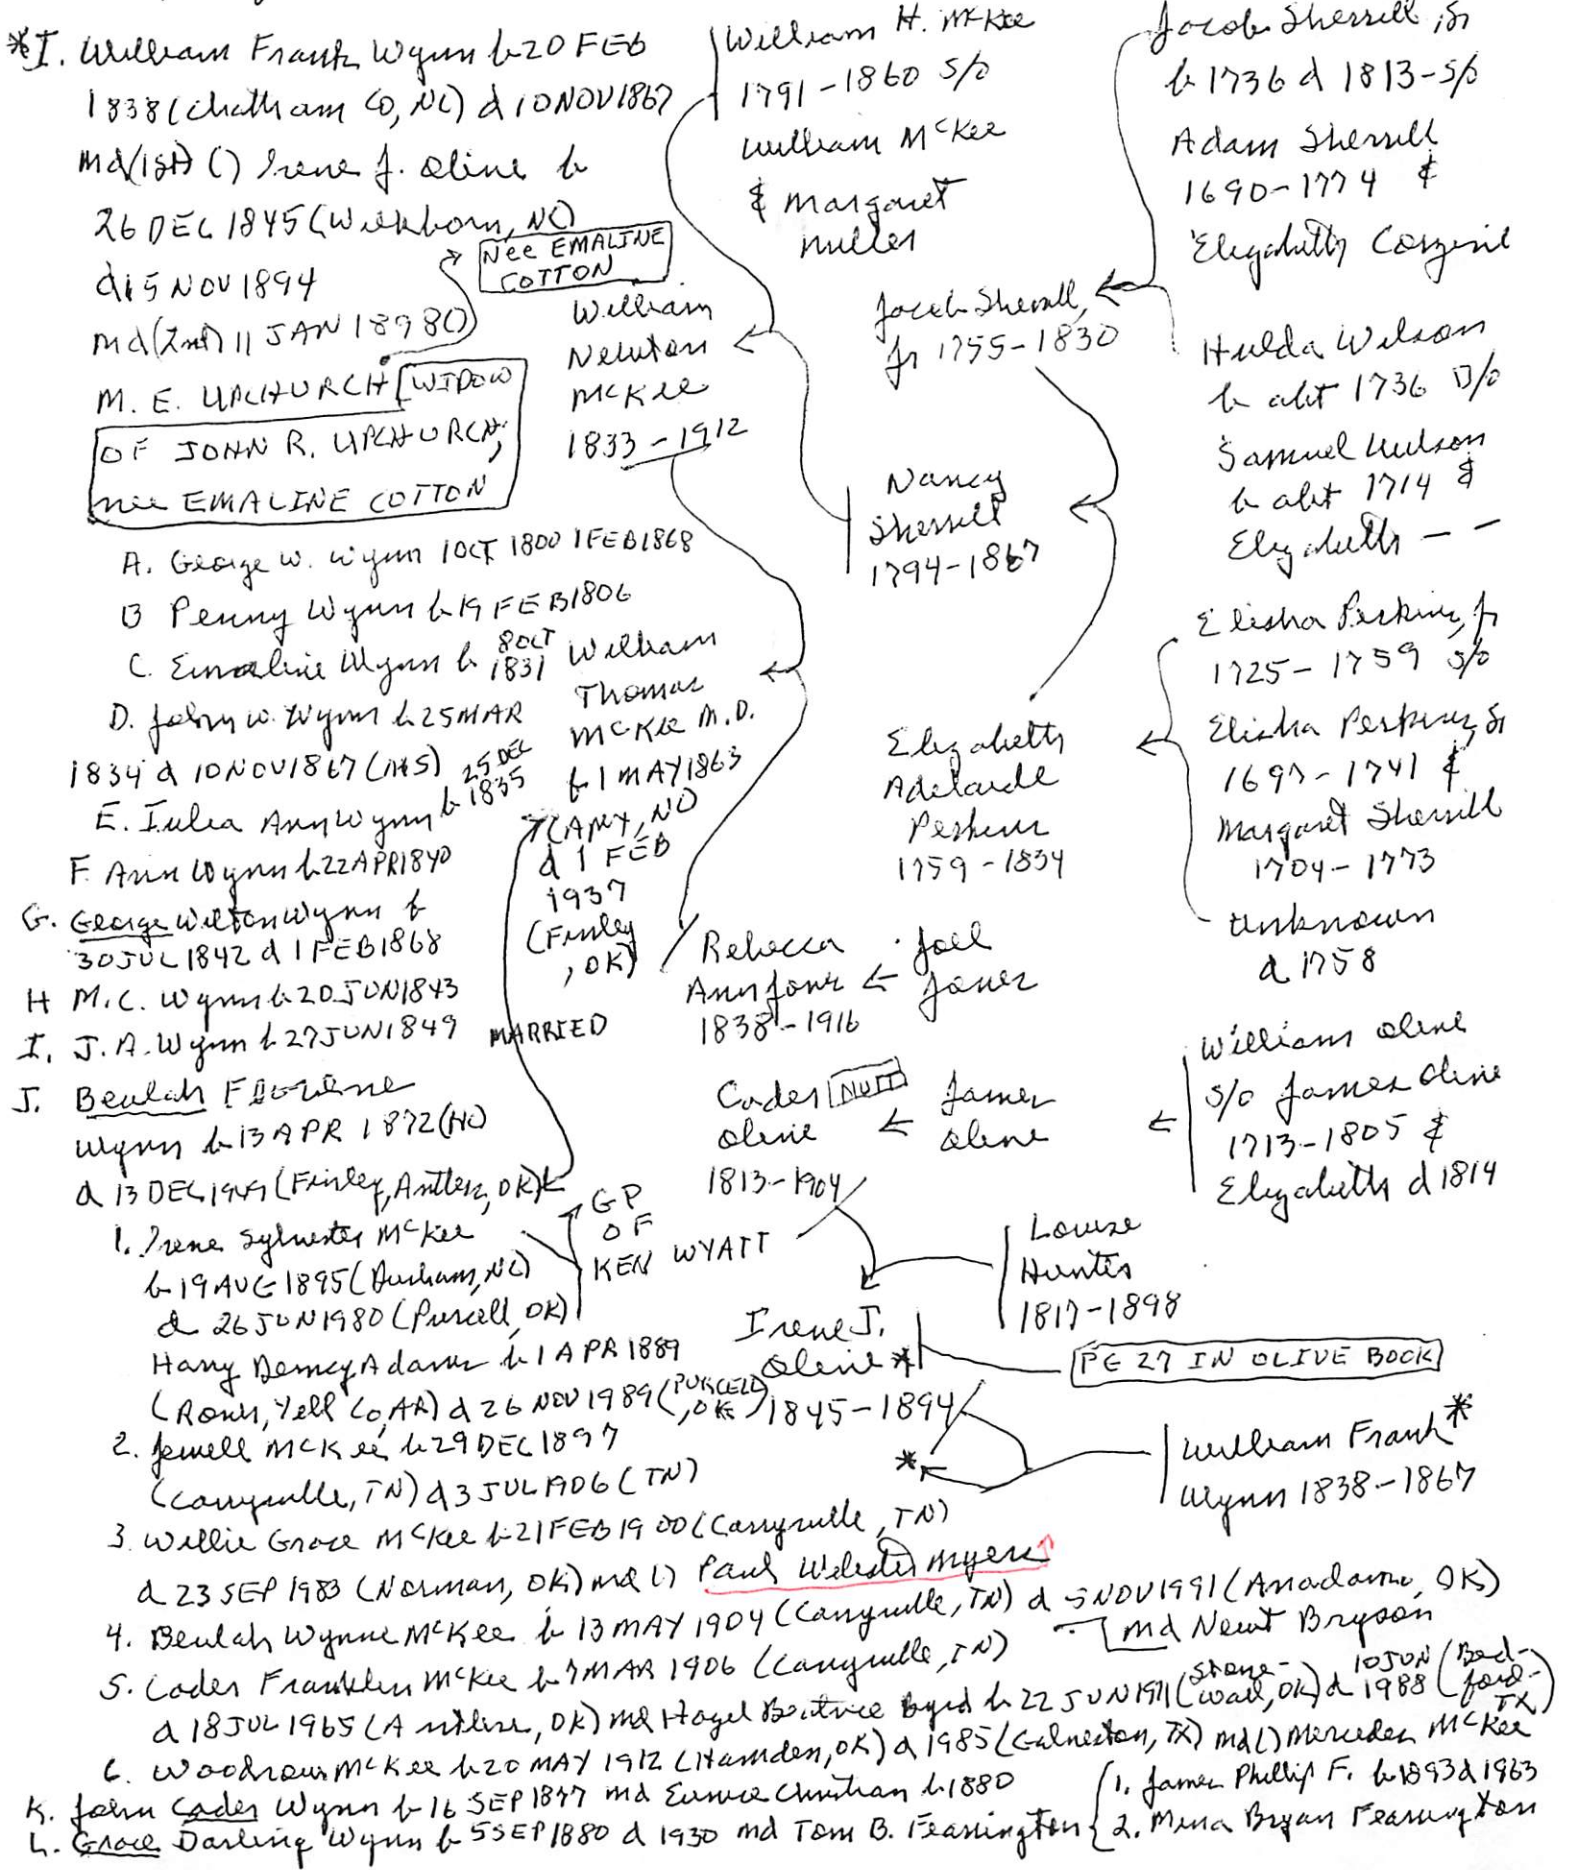 *I. William Frank Wynn b 20 FEB
1838 (Chatham Co, NC) d 10 NOV 1867
md (1st) () Irene J. Olive b
26 DEC 1845 (Welkborn, NC)
d 15 NOV 1894
md (2nd) 11 JAN 1898 ()
Nee EMALINE
COTTON
M. E. UPCHURCH [WIDOW
OF JOHN R. UPCHURCH,
nee EMALINE COTTON
A. George W. Wynn 1 OCT 1800 1 FEB 1868
B Penny Wynn b 19 FEB 1806
C. Emaline Wynn b 8 OCT 1831
D. John W. Wynn b 25 MAR
1834 d 10 NOV 1867 (MS)
E. Iulia Ann Wynn b 25 DEC 1835
F. Ann Wynn b 22 APR 1840
G. George Wilton Wynn b
30 JUL 1842 d 1 FEB 1868
H M.C. Wynn b 20 JUN 1843
I. J.A. Wynn b 27 JUN 1849
J. Beulah Florene
Wynn b 13 APR 1872 (NC)
d 13 DEC 1949 (Finley, Antlers, OK)
MARRIED
1. Irene Sylvester McKee
b 19 AUG 1895 (Durham, NC)
d 26 JUN 1980 (Purcell, OK)
GP
OF
KEN WYATT
Harry Demcy Adams b 1 APR 1889
(Rover, Yell Co, AR) d 26 NOV 1989 (PURCELL, OK)
2. Jewell McKee b 29 DEC 1897
(Carryville, TN) d 3 JUL 1906 (TN)
3. Willie Grace McKee b 21 FEB 1900 (Carryville, TN)
d 23 SEP 1983 (Norman, OK) md () Paul Webster Myers
4. Beulah Wynne McKee b 13 MAY 1904 (Carryville, TN) d 5 NOV 1991 (Anadarko, OK)
md Newt Bryson
5. Cader Franklin McKee b 7 MAR 1906 (Carryville, TN)
d 18 JUL 1965 (Antlers, OK) md Hazel Beatrice Byrd b 22 JUN 1911 (Stonewall, OK) d 10 JUN 1988 (Bedford, TX)
6. Woodrow McKee b 20 MAY 1912 (Hamden, OK) d 1985 (Galveston, TX) md () Mercedes McKee
K. John Cader Wynn b 16 SEP 1877 md Eunice Christian b 1880
L. Grace Darling Wynn b 5 SEP 1880 d 1930 md Tom B. Fearrington
1. James Phillip F. b 1893 d 1963
2. Mena Bryan Fearrington
William H. McKee
1791-1860 s/o
William McKee
& Margaret
Miller
William
Newton
McKee
1833-1912
William
Thomas
McKee M.D.
b 1 MAY 1863
(APEX, NC)
d 1 FEB
1937
(Finley
, OK)
Jacob Sherrill,
Jr 1755-1830
Nancy
Sherrill
1794-1867
Elizabeth
Adelaide
Perkins
1759-1834
Rebecca
Ann Jones
1838-1916
Joel
Jones
Cader [NUTT]
Olive
1813-1904
James
Olive
Irene J.
Olive*
1845-1894
*
Louize
Hunter
1817-1898
PG 27 IN OLIVE BOOK
William Frank*
Wynn 1838-1867
Jacob Sherrill, Sr
b 1736 d 1813-s/o
Adam Sherrill
1690-1774 &
Elizabeth Corzine
Hulda Wilson
b abt 1736 D/o
Samuel Wilson
b abt 1714 &
Elizabeth - -
Elisha Perkins, Jr
1725-1759 s/o
Elisha Perkins, Sr
1697-1741 &
Margaret Sherrill
1704-1773
Unknown
d 1758
William Olive
s/o James Olive
1713-1805 &
Elizabeth d 1814